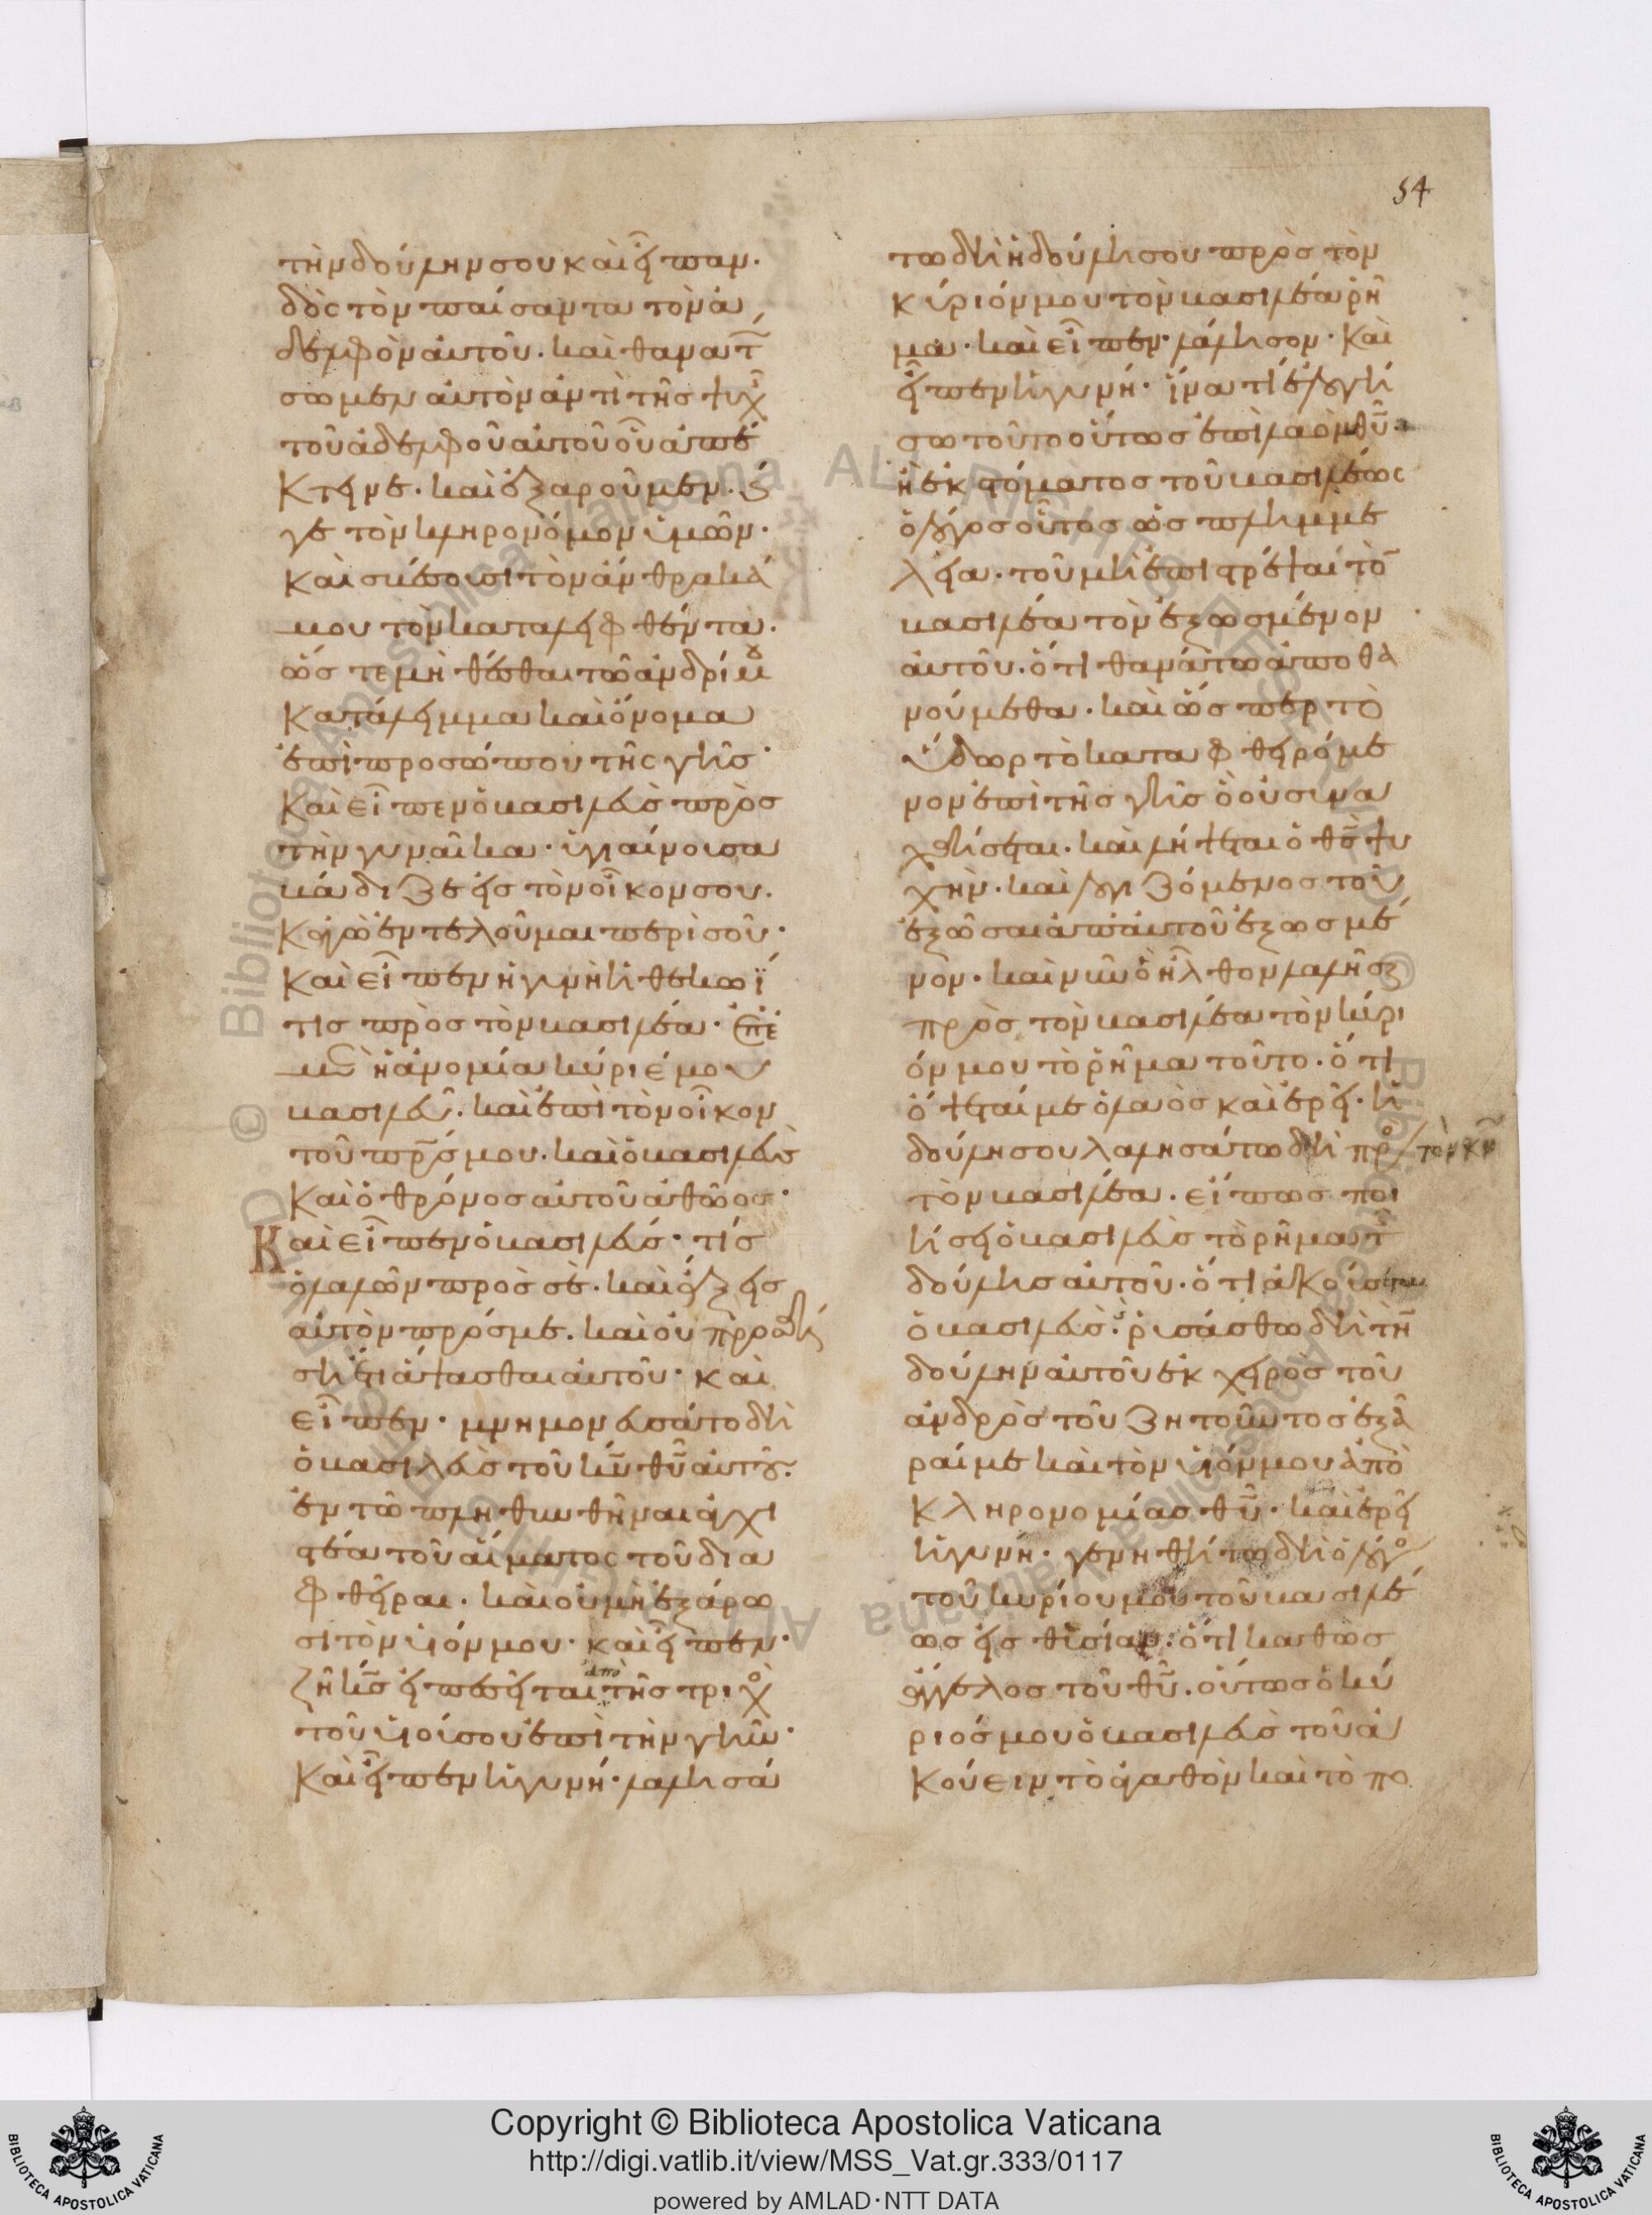 54
τὴν δούλην σου καὶ εἶπαν·
δὸς τὸν παίσαντα τὸν ἀ
δελφὸν αὐτοῦ. καὶ θανατ
σωμεν αὐτὸν ἀντὶ τῆς ψυχ
τοῦ ἀδελφοῦ αὐτοῦ οὗ ἀπέ
κτεινε. καὶ ἐξαροῦμεν. ϛ
γε τὸν κληρονόμον ὑμῶν·
καὶ σβέσωσι τὸν ἄνθρακά
μου τὸν καταλειφθέντα.
ὥστε μὴ θέσθαι τῶ ἀνδρί μου
κατάλειμμα καὶ ὄνομα
ἐπὶ προσώπου τῆς γῆς·
καὶ εἶπεν ὁ βασιλεὺς πρὸς
τὴν γυναῖκα· ὑγιαίνουσα
βάδιζε εἰς τὸν οἶκον σου.
κἀγὼ ἐντελοῦμαι περὶ σοῦ·
καὶ εἶπεν ἡ γυνὴ ἡ θεκωΐ
τις πρὸς τὸν βασιλέα· ἐπ ἐ
μὲ ἡ ἀνομία κύριέ μου
βασιλεῦ. καὶ ἐπὶ τὸν οἶκον
τοῦ πρς μου. καὶ ὁ βασιλεὺς
καὶ ὁ θρόνος αὐτοῦ ἀθῶος·
Καὶ εἶπεν ὁ βασιλεύς· τίς
ὁ λαλῶν πρὸς σὲ. καὶ ἄξεις
αὐτὸν πρός με. καὶ οὐ προσθή
σει ἔτι ἅψασθαι αὐτοῦ· καὶ
εἶπεν· μνημονευσάτο δὴ
ὁ βασιλεὺς τοῦ κυ θυ αὐτοῦ.
ἐν τῶ πληθυνθῆναι ἀγχι
στέα τοῦ αἵματος τοῦ δια
φθεῖραι. καὶ οὐ μὴ ἐξάρω
σι τὸν υἱόν μου· καὶ εἶπεν·
ζῆ κς εἰ πεσεῖται ἀπὸ τῆς τριχὸ
τοῦ υἱοῦ σου ἐπὶ τὴν γῆν·
καὶ εἶπεν ἡ γυνή· λαλησά
τω δὴ ἡ δούλη σου πρὸς τὸν
κύριόν μου τὸν βασιλέα ῥῆ
μα· καὶ εἶπεν· λάλησον· καὶ
εἶπεν ἡ γυνή· ἵνα τί ἐλογί
σω τοῦτο οὕτως ἐπὶ λαὸν θυ·
ἢ ἐκ στόματος τοῦ βασιλέως
ὁ λόγος οὗτος ὡς πλημμέ
λεια. τοῦ μὴ ἐπιστρέψαι τὸ
βασιλέα τὸν ἐξωσμένον
αὐτοῦ. ὅτι θανάτω ἀποθα
νούμεθα. καὶ ὥσπερ τὸ
ὕδωρ τὸ καταφθειρόμε
νον ἐπὶ τῆς γῆς ὃ οὐ συνα
χθήσεται. καὶ λήψεται ὁ θς ψυ
χήν. καὶ λογιζόμενος τοῦ
ἐξῶσαι ἀπ αὐτοῦ ἐξωσμέ
νον. καὶ νῦν ὃ ἦλθον λαλῆσαι
πρὸς τὸν βασιλέα τὸν κύρι
όν μου τὸ ῥῆμα τοῦτο. ὅτι
ὄψεταί με ὁ λαὸς καὶ ἐρεῖ. ἡ
δούλη σου λαλησάτω δὴ πρὸ / τὸν κν
τὸν βασιλέα. εἴπως ποι
ήσει ὁ βασιλεὺς τὸ ρῆμα τ
δούλης αὐτοῦ. ὅτι ἀκούσεται
ὁ βασιλεύς. ῥυσάσθω δὴ τὴ
δούλην αὐτοῦ ἐκ χειρὸς τοῦ
ἀνδρὸς τοῦ ζητοῦντος ἐξᾶ
ραί με καὶ τὸν υἱόν μου ἀπὸ
κληρονομίας θυ. καὶ ἐρεῖ
ἡ γυνή. γενηθήτω δὴ ὁ λόγο
τοῦ κυρίου μου τοῦ βασιλέ
ως εἰς θυσίαν. ὅτι καθὼς
ἄγγελος τοῦ θυ. οὕτως ὁ κύ
ριός μου ὁ βασιλεὺς τοῦ ἀ
κούειν τὸ ἀγαθὸν καὶ τὸ πο
Copyright © Biblioteca Apostolica Vaticana
http://digi.vatlib.it/view/MSS_Vat.gr.333/0117
powered by AMLAD·NTT DATA
BIBLIOTECA APOSTOLICA VATICANA
BIBLIOTECA APOSTOLICA VATICANA